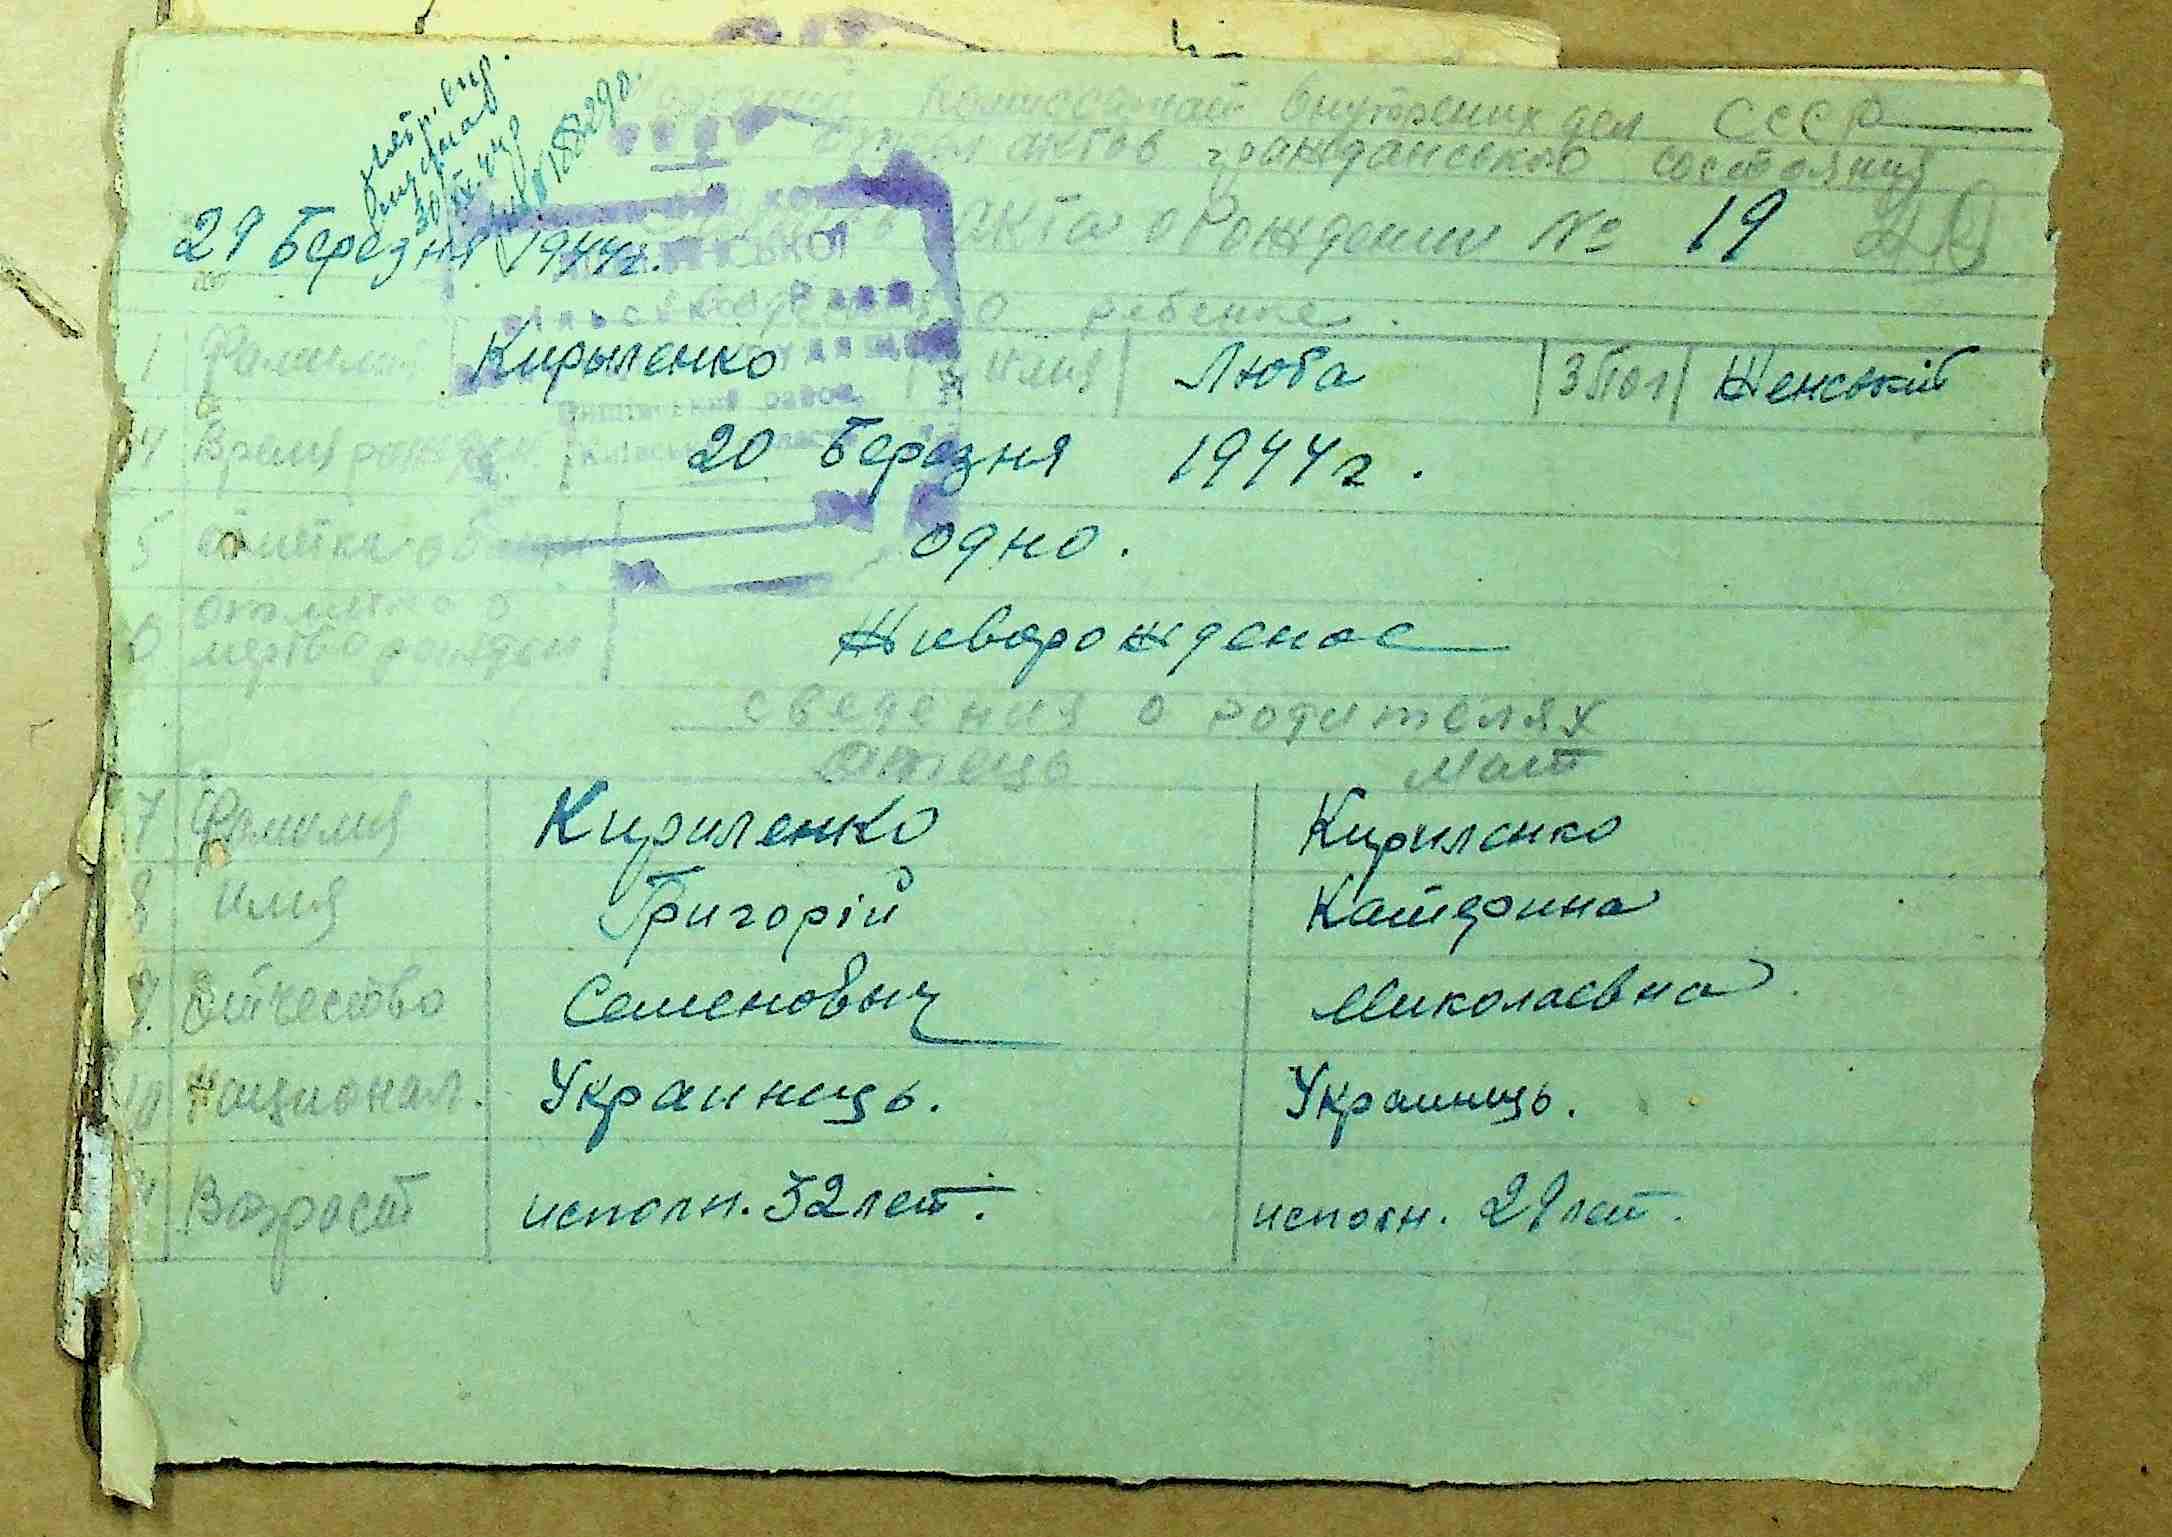 Комиссариат Внутрених дел СССР
актов гражданського состояния
Акта о Рождении № 19
29 Березня 1944г.
о ребенке.
1 Фамилия Кирыленко Имия Люба 3 Пол Женський
4 Время рожден 20 Березня 1944г.
5 одно.
6 отметка о мертворожден Живорожденое
сведения о родителях
Отець Мат
7 Фамилия Кириленко Кириленко
8 Имия Григорій Катерина
9. Отчество Семеновыч Миколаевна
10 Национал. Украинець. Украинець.
11 Возраст исполн. 32 лет. исполн. 29 лет.